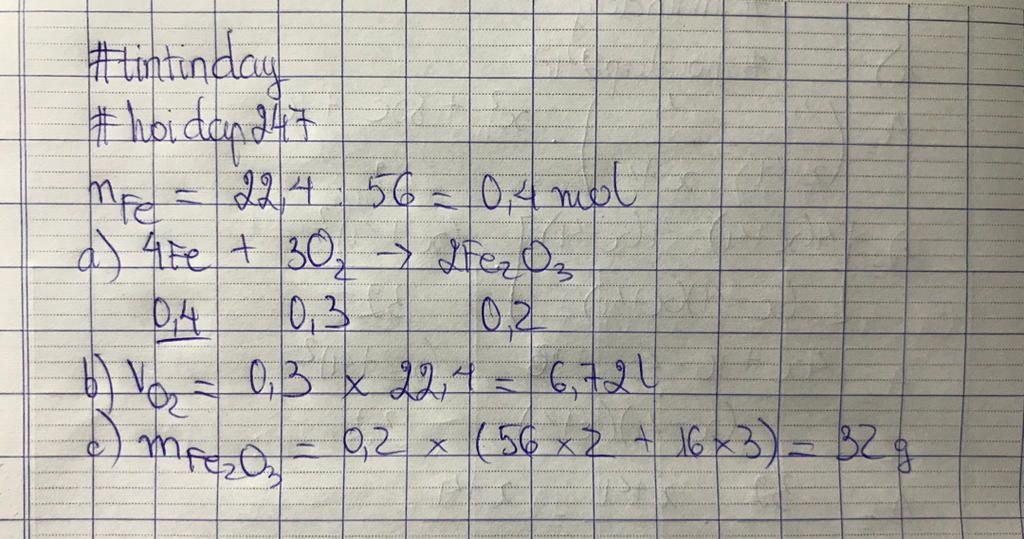 #tintinday
#hoidap247
nFe = 22,4 : 56 = 0,4 mol
a) 4Fe + 3O₂ → 2Fe₂O₃
0,4 0,3 0,2
b) VO₂ = 0,3 x 22,4 = 6,72l
c) mFe₂O₃ = 0,2 x (56 x 2 + 16 x 3) = 32g